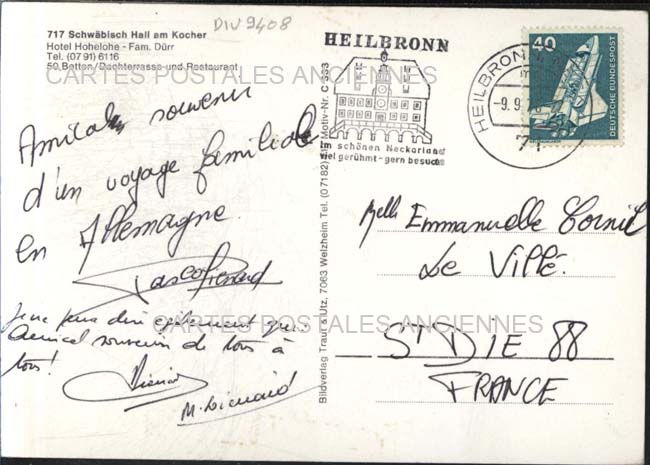 DIV 9408
717 Schwäbisch Hall am Kocher
Hotel Hohelohe - Fam. Dürr
Tel. (07 91) 6116
50 Betten/Dachterrasse und Restaurant
CARTES POSTALES ANCIENNES
Amicale souvenir
d'un voyage familiale
en Allemagne.
Je ne peux dire également que
Amical souvenir de tous à
tous!
CARTES POSTALES ANCIENNES
Bildverlag Traut & Utz, 7063 Welzheim Tel. (07182) Motiv-Nr. C 333
HEILBRONN
Im schönen Neckarland
viel gerühmt - gern besucht
HEILBRONN
-9.9
71
40
DEUTSCHE BUNDESPOST
Melle Emmanuelle Cornil
Le Villé.
St DIE 88
FRANCE